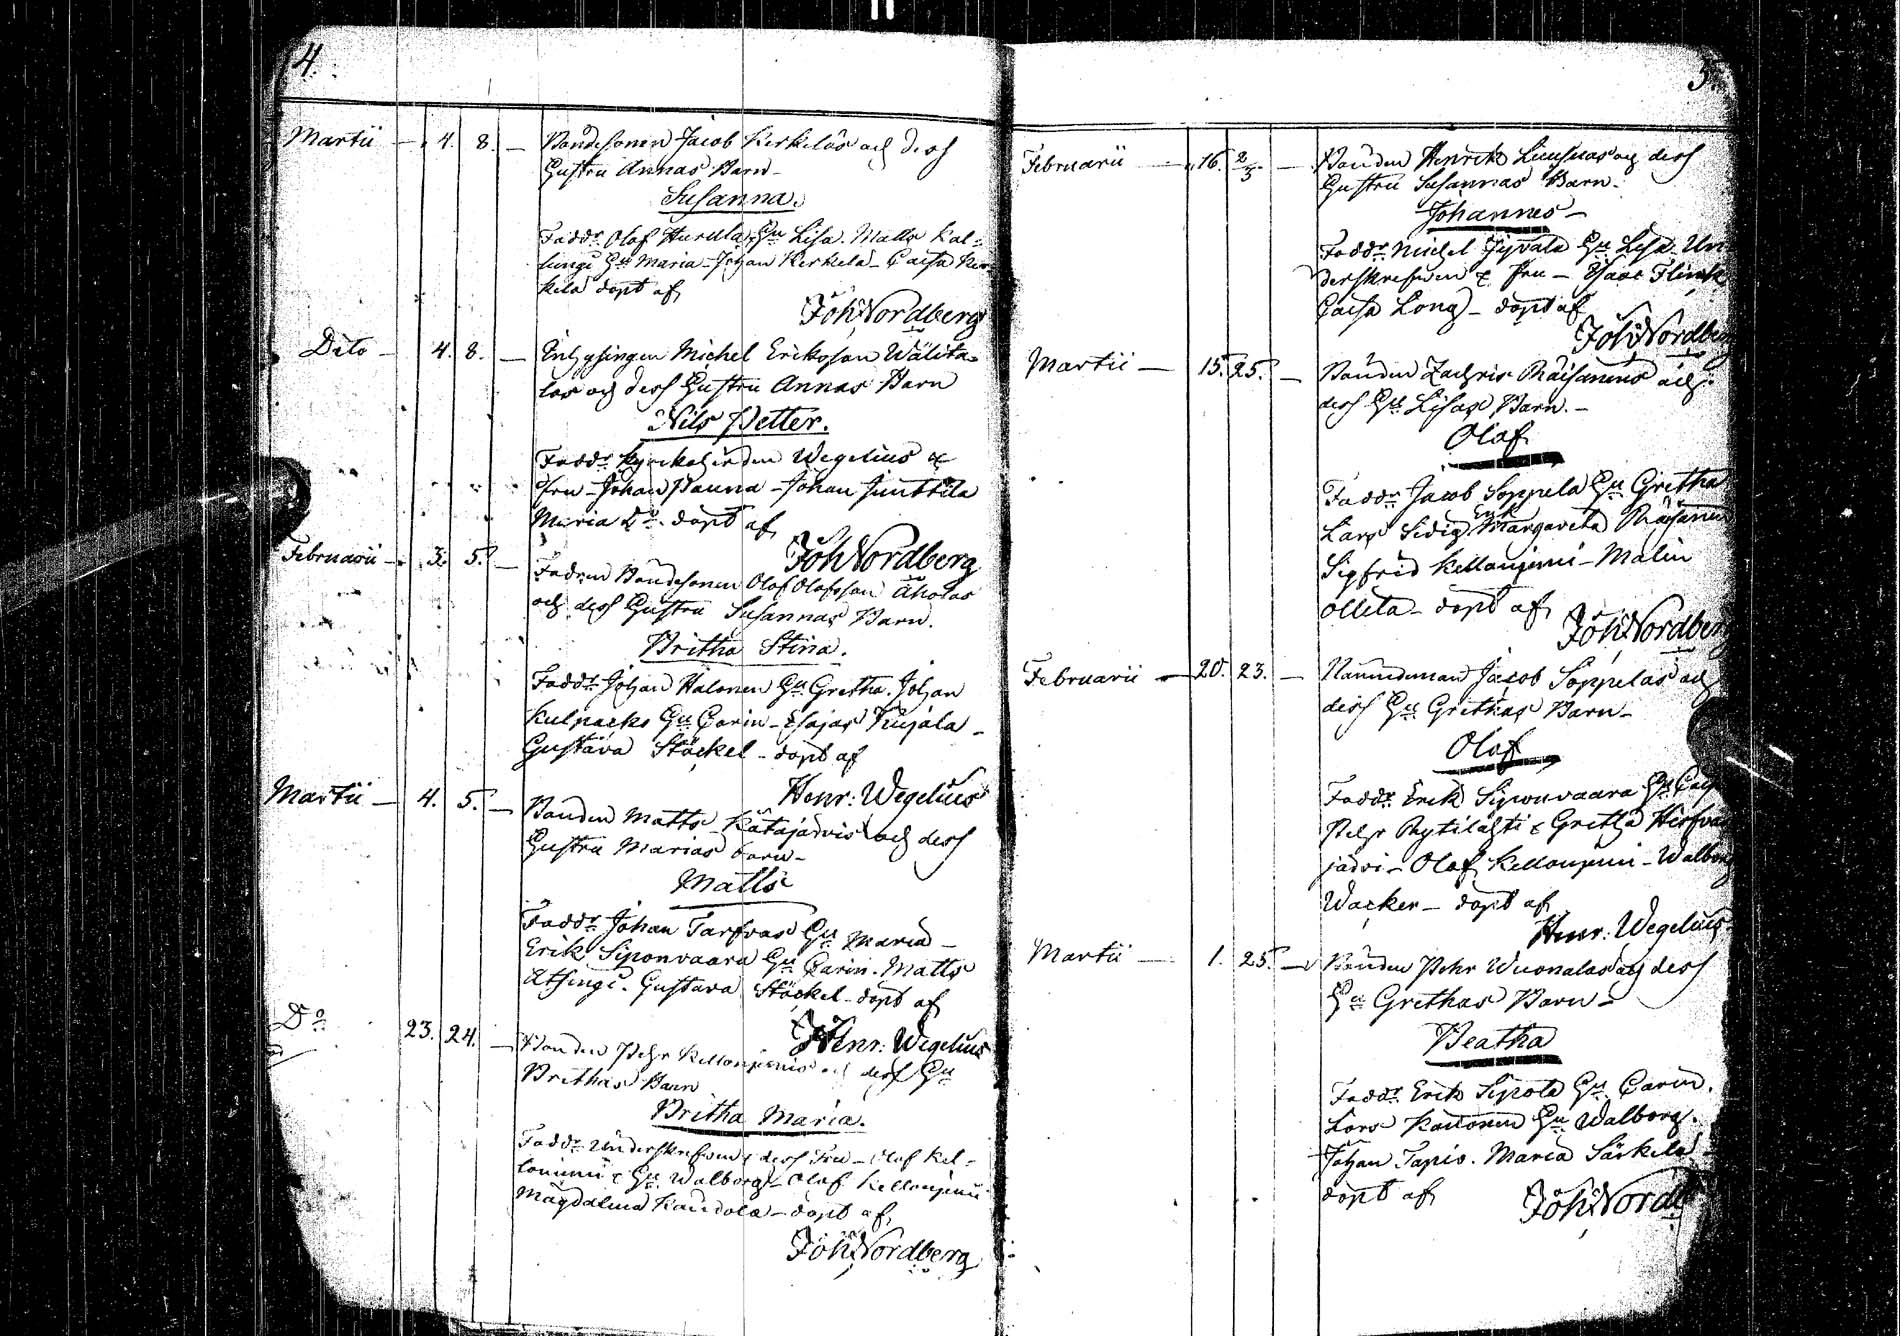 4
Martii — 4. 8. — Bondesonen Jacob Kerkelas och dess
Hustru Annas Barn
Susanna.
Fadd: Olof Hurula, Hu Lisa. Matts Kal-
lungi Hu Maria - Johan Kerkela - Caisa Ker
kela döpt af
Joh Nordberg
Dito — 4. 8. — Inhysingen Michel Eriksson Wälita-
los och dess Hustru Annas Barn
Nils Petter.
Fadd: Kyrkoherden Wegelius &
Fru - Johan Pauna - Johan Junttila
Maria Do. döpt af
Joh Nordberg
Februarii — 3. 5. — Bondesonen Olof Olofsson Aholas
och dess Hustru Susannas Barn.
Britha Stina.
Fadd: Johan Halonen Hu Gretha. Johan
Kulpacko Hu Carin - Esajas Kujala -
Gustava Stöckel - döpt af
Henr: Wegelius
Martii — 4. 5. — Bonden Matts Katajarvis och dess
Hustru Marias barn -
Matts
Fadd: Johan Tarfvas Hu Maria -
Erik Siponvaara Hu Carin. Matts
Atsingi. Gustava Stöckel - döpt af
Henr: Wegelius
Do 23. 24. — Bonden Pehr Kellonjemis och dess Hu
Brithas Barn
Britha Maria.
Fadd: Underskrefven & dess Fru - Olof Kel-
loniemi & Hu. Walborg - Olof Kellonjemi
Magdalena Kaudola - döpt af
Joh Nordberg
5.
Februarii — 16. 2/3. — Bonden Henrik Liusuas och dess
Hustru Susannas Barn.
Johannes -
Fadd: Michel Jyvala Hu Lisa. Un
derskrefven & Fru - Isaac Flinck
Caisa Long - döpt af
Joh Nordberg
Martii — 15. 25. — Bonden Zachris Räisanens och
dess Hu Lisas Barn. -
Olof
Fadd: Jacob Soppela Hu Gretha
Lars Sidig Enk Margareta Räisanen
Sigfrid Kellonjemi - Malin
Olleta - döpt af
Joh Nordberg
Februarii — 20. 23. — Nämndeman Jacob Soppelas och
dess Hu Grethas Barn -
Olof
Fadd: Erik Siponvaara Hu
Pehr Pöytilahti & Gretha Hirfvas
järvi - Olof Kellonjemi - Walborg
Wacker - döpt af
Henr: Wegelius
Martii — 1. 25. — Bonden Pehr Wuonalas och dess
Hu Grethas Barn -
Beatha
Fadd: Erik Sipola Hu Carin.
Lars Kaitonen Hu Walborg.
Johan Tapio. Maria Särkela
döpt af
Joh Nordb